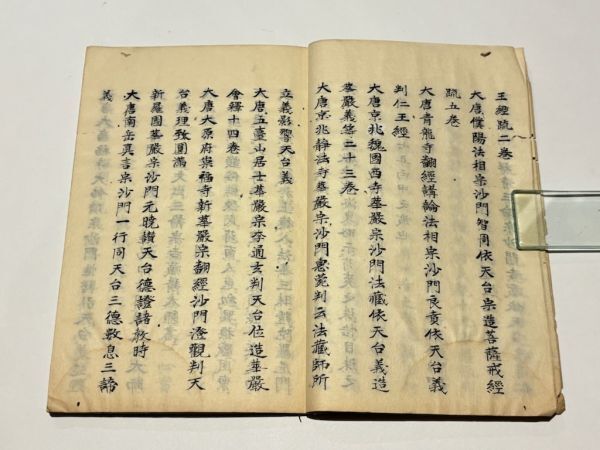 王經疏二卷
大唐僕陽法相宗沙門智周依天台宗造菩薩戒經
疏五卷
大唐青龍寺翻經講論法相宗沙門良賁依天台義
判仁王經
大唐京兆魏國西寺華嚴宗沙門法藏依天台義造
華嚴義等二十三卷
大唐京兆靜法寺華嚴宗沙門惠菀判云法藏師所
立義影響天台義
大唐五臺山居士華嚴宗李通玄判天台位造華嚴
會釋十四卷
大唐太原府崇福寺新華嚴宗翻經沙門澄觀判天
台義理致圓滿
新羅國華嚴宗沙門元曉讃天台德證諸教時
大唐南岳真言宗沙門一行同天台三德數息三諦
義